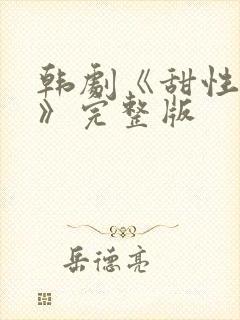 韩劇《甜性
》完整版
岳德亮